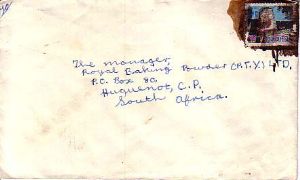 The Manager,
Royal Baking Powder (P.T.Y) LTD,
P.O. Box 8C
Huguenot, C.P.
South Africa.